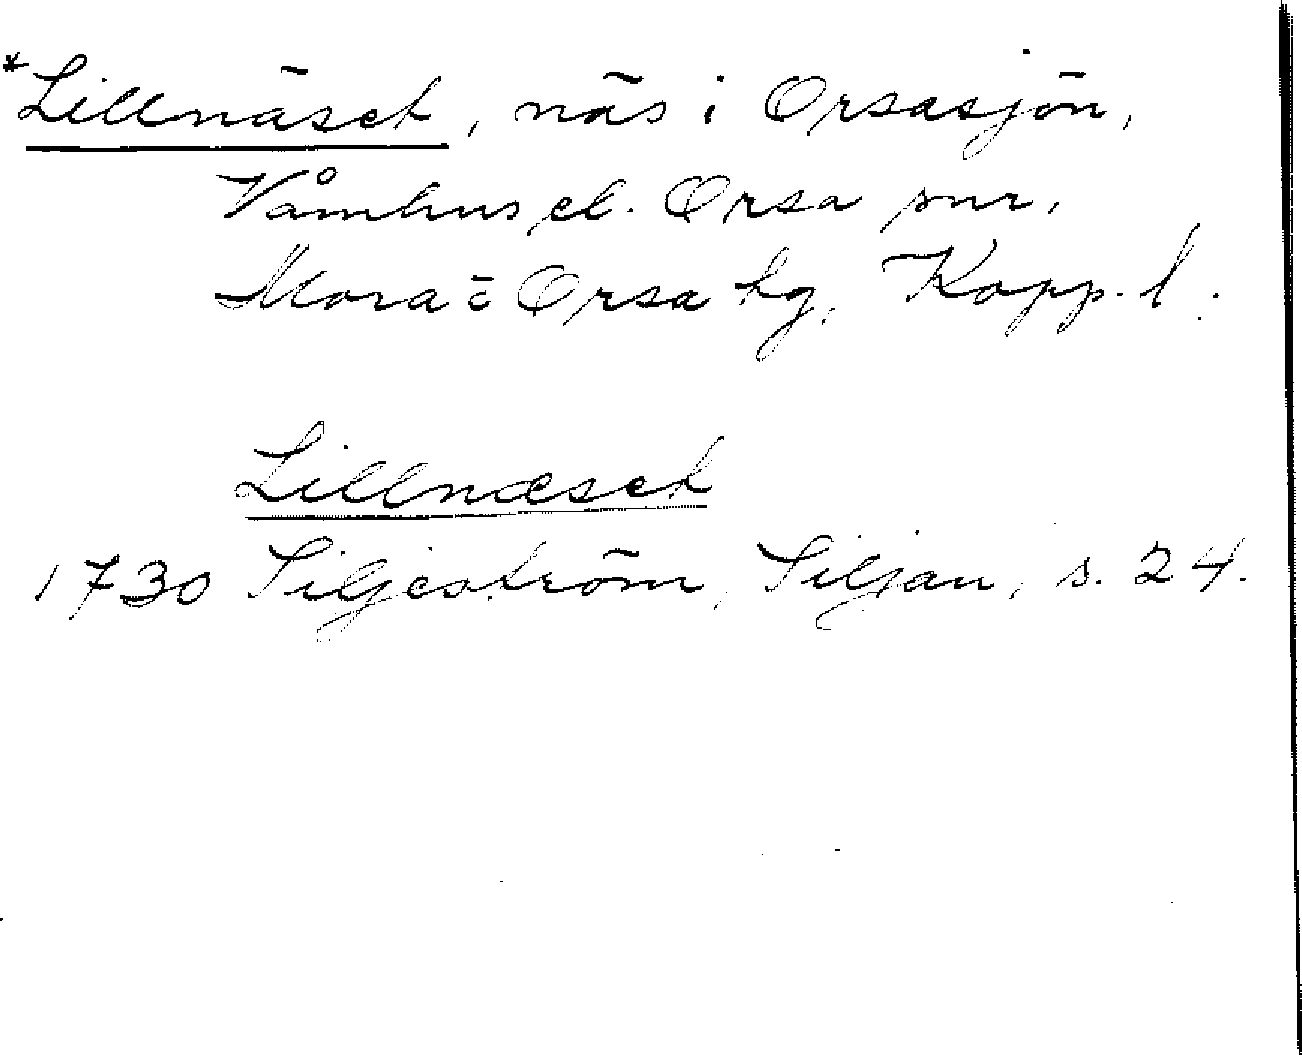 *Lillnäset, näs i Orsasjön,
Våmhus el. Orsa snr,
Mora o Orsa hg, Kopp. l.
Lillnæset
1730 Siljeström, Siljan, s. 24.